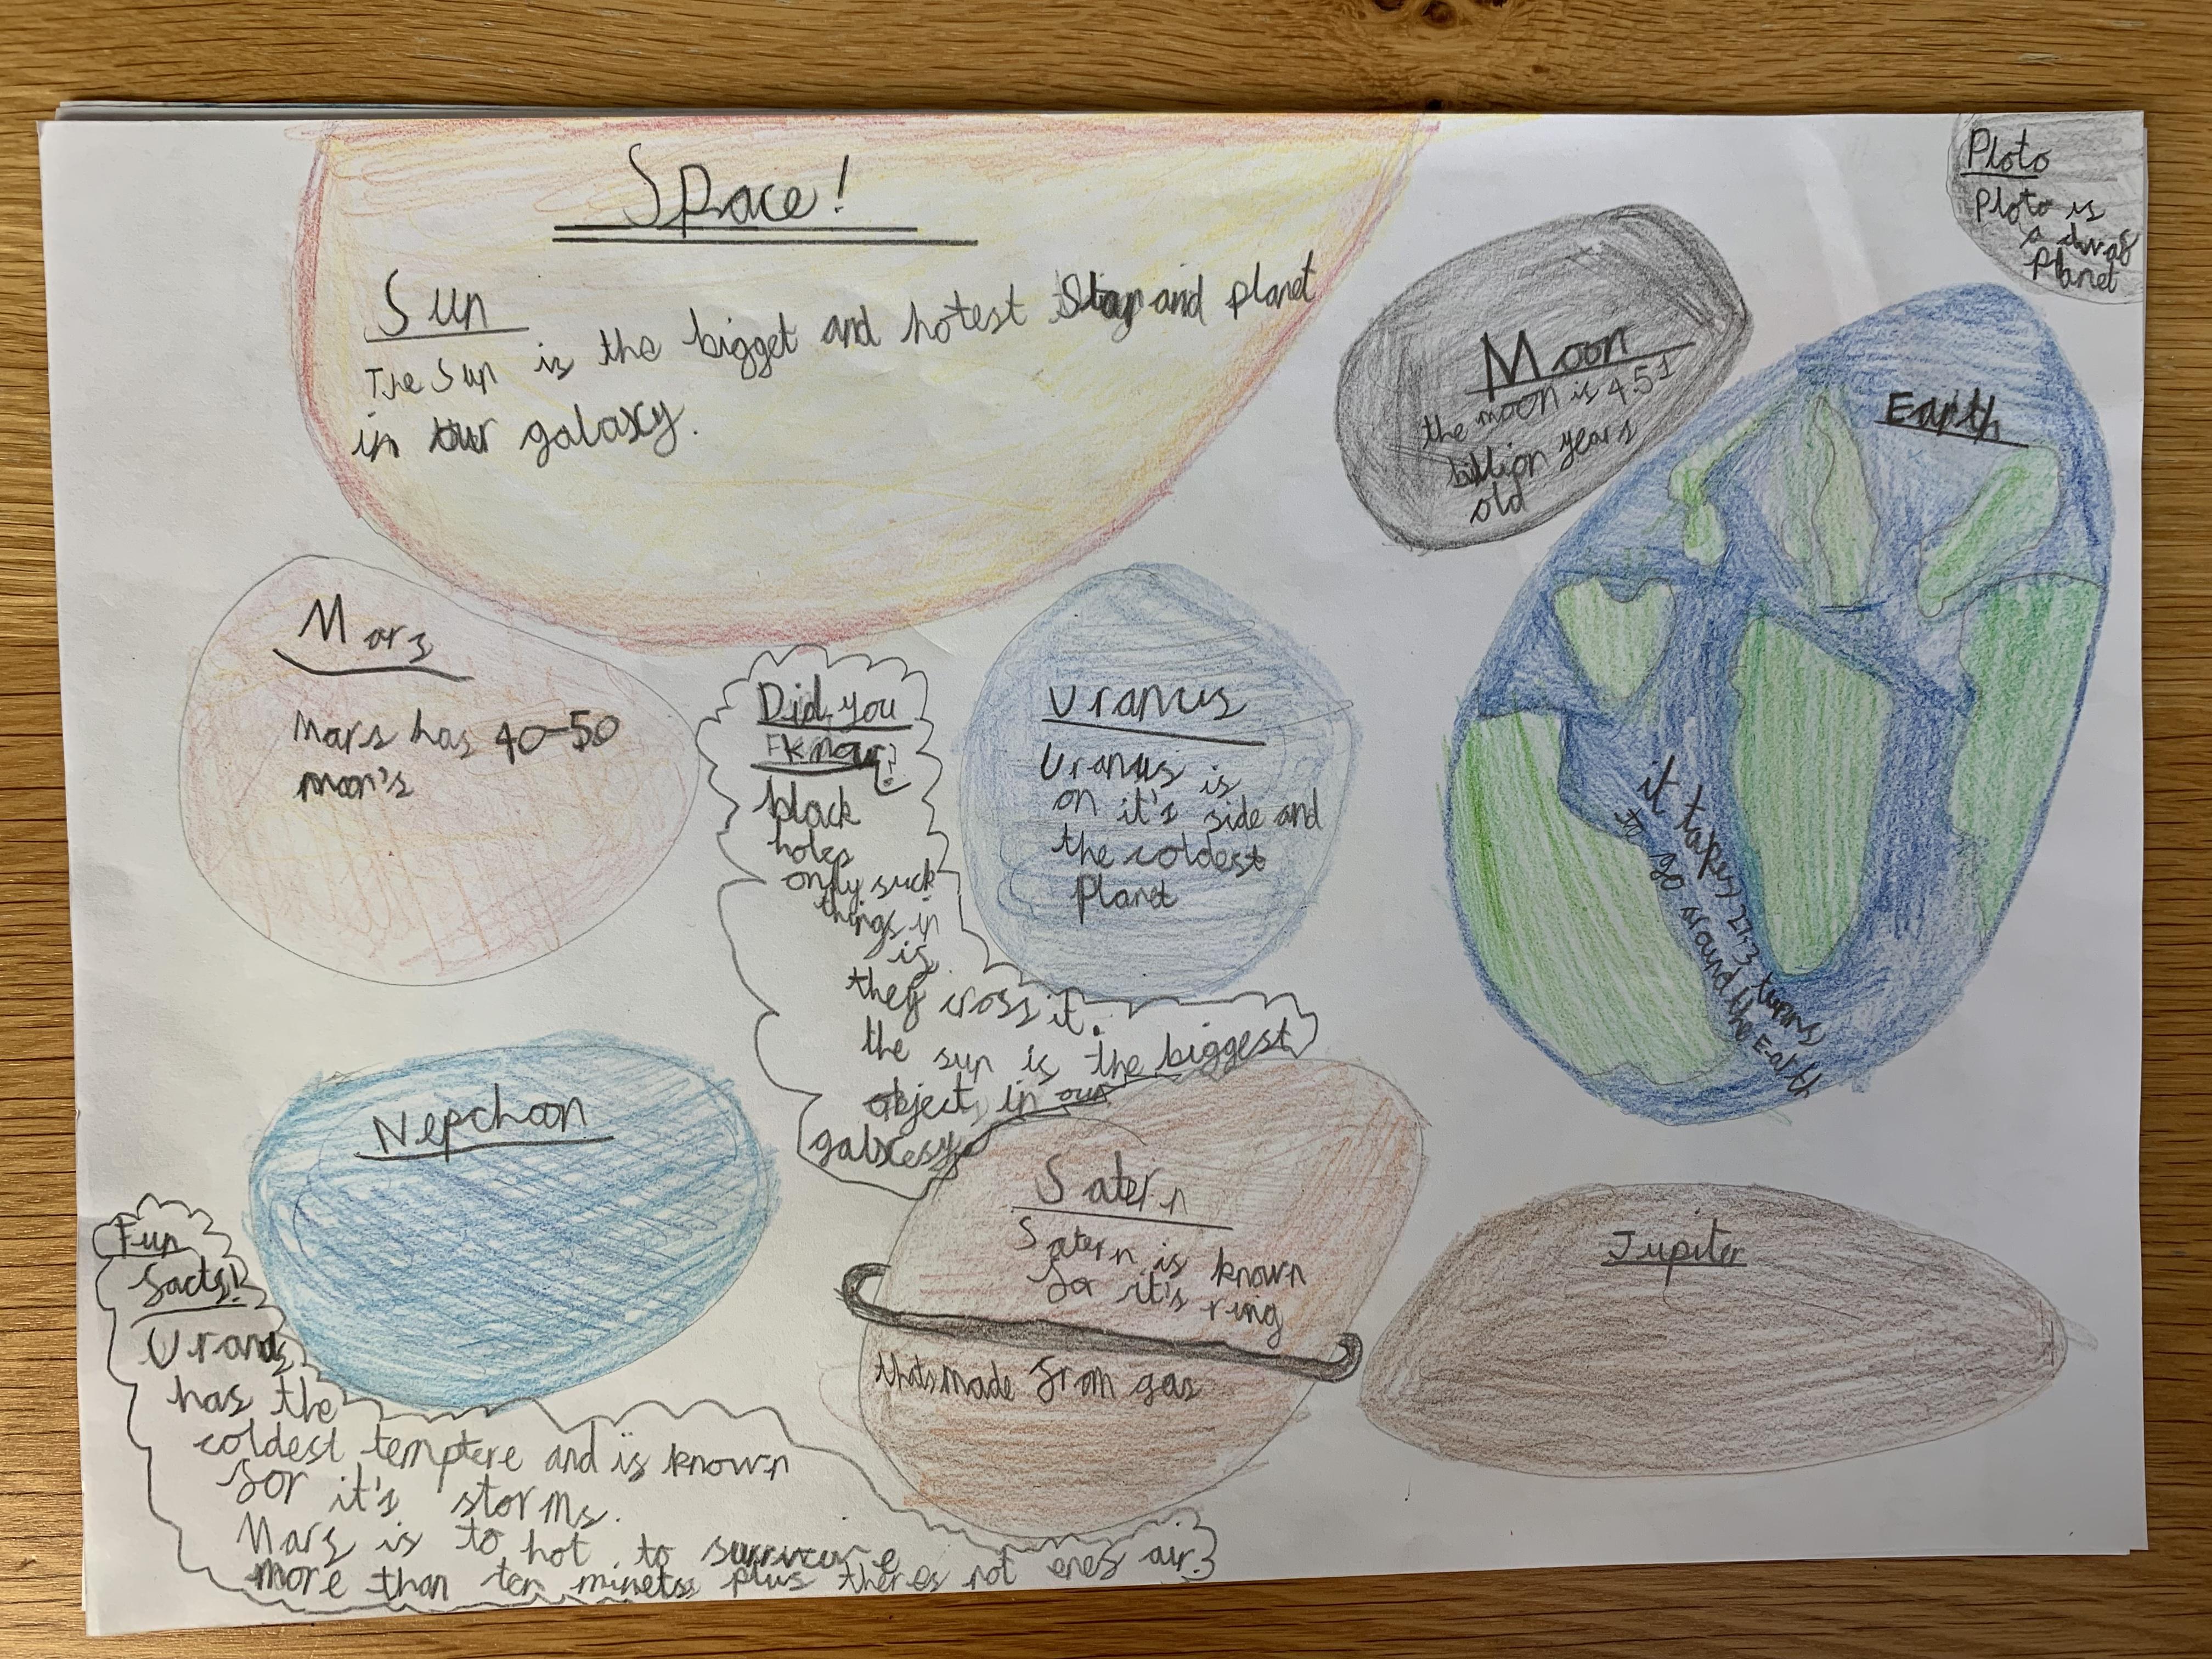 Space!
Sun
The Sun is the bigget and hotest Star and planet
in our galaxy.
Ploto
Ploto is
a dwaf
Planet
Moon
the moon is 4.51
billion years
old
Earth
it takes 27.3 turns
to go around the Earth
Mars
Mars has 40-50
moon's
Did you
know!
black
holes
only suck
things in
is
they cross it.
the sun is the biggest
object in our
galxesy
Uranus
Uranus is
on it's side and
the coldest
Planet
Nepchoon
Satern
Satern is known
for it's ring
thats made from gas
Jupiter
Fun
facts!
Uranus
has the
coldest temptere and is known
for it's storms.
Mars is to hot to
more than ten minets plus theres not enef air